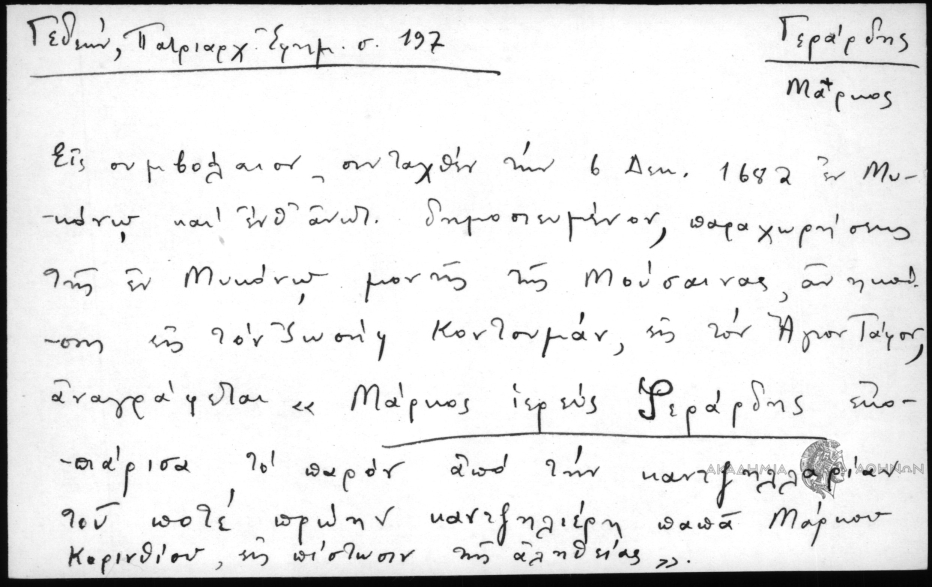 Γεδεών, Πατριαρχ. Εφημ. σ. 197
Γεράρδης
Μάρκος
Εἰς συμβόλαιον, συνταχθέν τήν 6 Δεκ. 1682 ἐν Μυ-
-κόνῳ καί ἐνθ' ἀνωτ. δημοσιευμένον, παραχωρήσεως
τῆς ἐν Μυκόνῳ μονῆς τῆς Μούσαινας, ἀνηκού-
-σης εἰς τόν Ἰωσήφ Κοντουμάν, εἰς τόν Ἅγιον Τάφον,
ἀναγράφεται « Μάρκος ἱερεύς Γεράρδης ἐκο-
-πιάρισα τό παρόν ἀπό τήν καντζηλλαρίαν
τοῦ ποτέ πρώην καντζηλιέρη παπᾶ Μάρκου
Κορινθίου, εἰς πίστωσιν τῆς ἀληθείας ».
ΑΚΑΔΗΜΙΑ ΑΘΗΝΩΝ